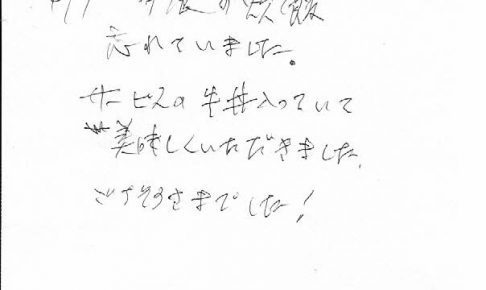 忘れていました。
サービスの牛丼入っていて
美味しくいただきました。
ごちそうさまでした!